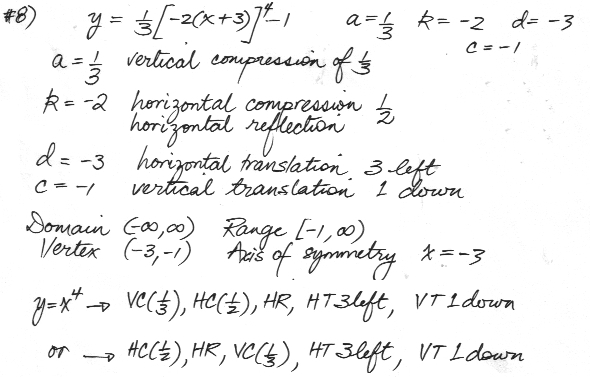 #8) y = 1/3[-2(x+3)]⁴-1 a = 1/3 k = -2 d = -3
c = -1
a = 1/3 vertical compression of 1/3
k = -2 horizontal compression 1/2
horizontal reflection
d = -3 horizontal translation 3 left
c = -1 vertical translation 1 down
Domain (-∞,∞) Range [-1,∞)
Vertex (-3,-1) Axis of symmetry x = -3
y=x⁴ → VC(1/3), HC(1/2), HR, HT 3 left, VT 1 down
or → HC(1/2), HR, VC(1/3), HT 3 left, VT 1 down